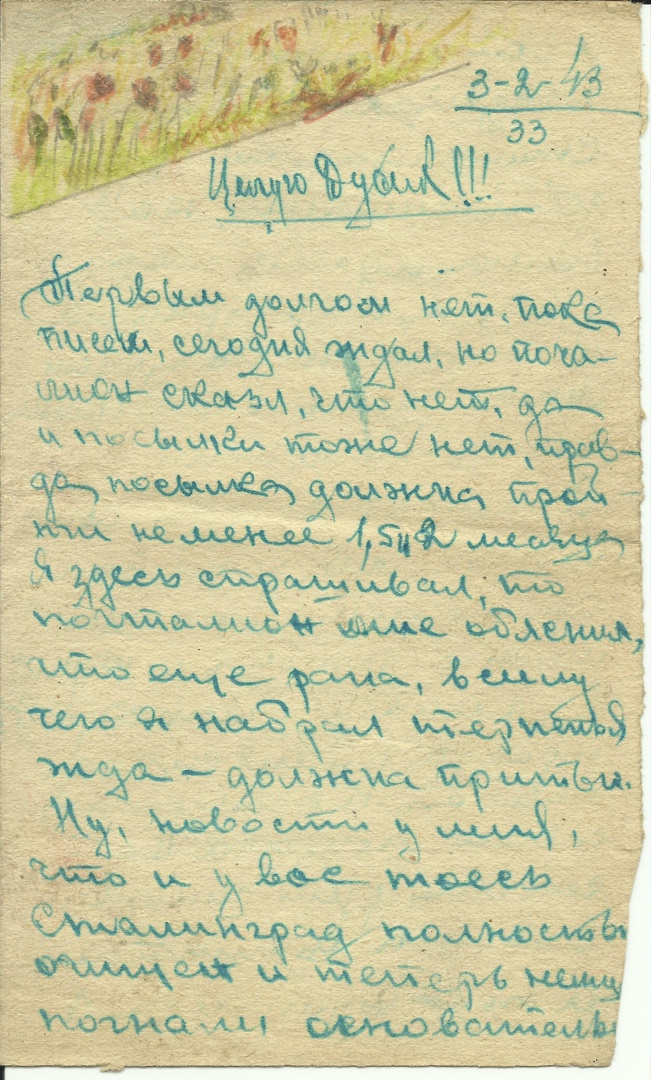 3-2-43
33
Целую Дусик!!!
Первым долгом нет. пока
писем, сегодня ждал, но почта-
лион сказл, что нет, да
и посылки тоже нет, прав-
да посылка должна прой-
ти не менее 1,5и 2 месяца
Я здесь спрашивал, то
почталион мне обяснил,
что еще рана, в силу
чего я набрал терпенья
жда - должна притьи.
Ну, новости у миня,
что и у вас тоесь
Сталинград полностью
очищен и теперь немц
погнали основательн